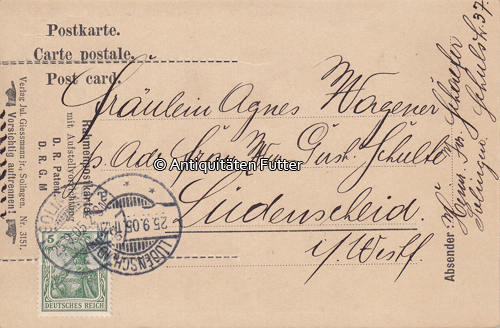 Postkarte.
Carte postale.
Post card.
Fräulein Agnes Wagener
p. Adr. Frau Ww. Gust. Schulte
Lüdenscheid
i/Westf.
Rahmenpostkarte
mit Aufstellvorrichtung
D. R. Patent
D. R. G. M
Verlag Jul. Giessmann Jr., Solingen. Nr. 3151.
Vorsichtig auftrennen!
Absender:
Schaefer
Solingen, Schulstr. 37.
© Antiquitäten Futter
LÜDENSCHEID
25.9.05.
5
DEUTSCHES REICH